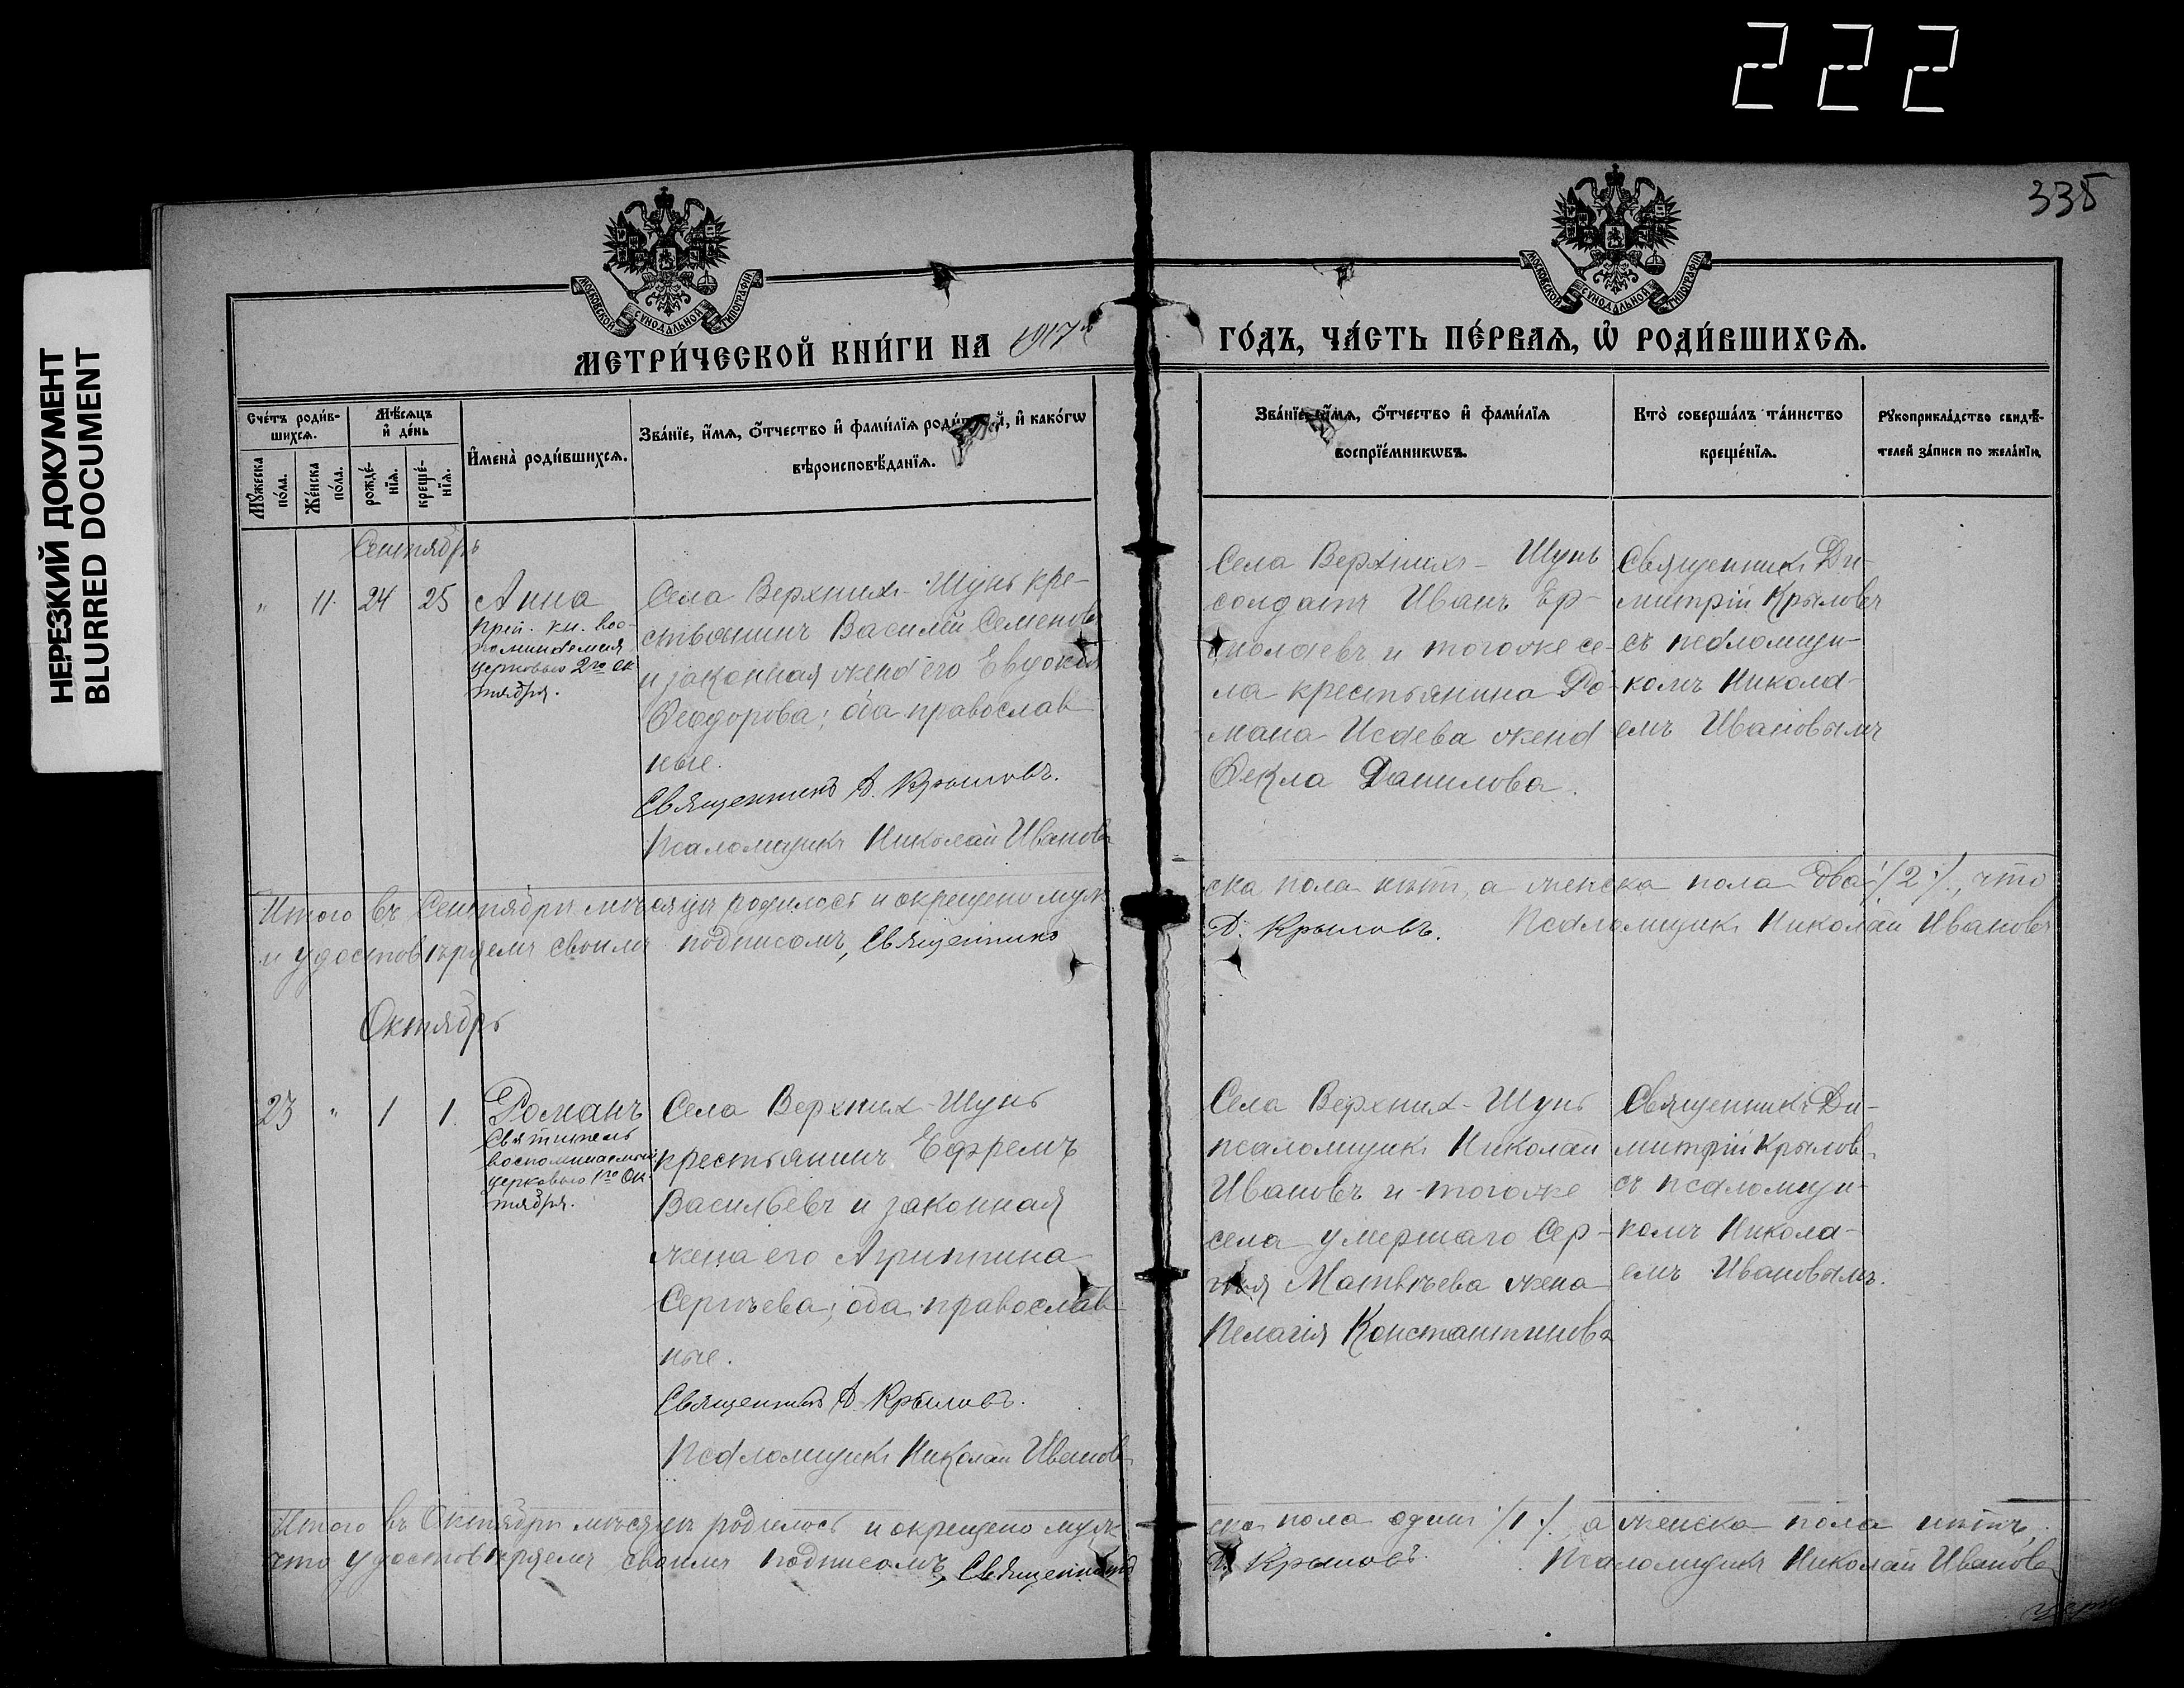 222
НЕРЕЗКИЙ ДОКУМЕНТ
BLURRED DOCUMENT
335
МОСКОВСКОЙ СѴНОДАЛЬНОЙ ТИПОГРАФІИ
МОСКОВСКОЙ СѴНОДАЛЬНОЙ ТИПОГРАФІИ
МЕТРИ́ЧЕСКОЙ КНИ́ГИ НА 1917й ГО́ДЪ, ЧА́СТЬ ПЕ́РВАЯ, Ѡ҆ РОДИ́ВШИХСЯ.
Сче́тъ роди́в-
шихся.
Мꙋ́жеска
по́ла.
Же́нска
по́ла.
Мѣ́сяцъ
и҆ де́нь
рожде́-
нїя.
креще́-
нїя.
И҆мена̀ роди́вшихся.
Зва́нїе, и҆́мя, ѻ҆́тчество и҆ фами́лїя роди́телей, и҆ како́гѡ
вѣроисповѣ́данїя.
Зва́нїе, и҆́мя, ѻ҆́тчество и҆ фами́лїя
воспрїе́мникѡвъ.
Кто̀ соверша́лъ та́инство
креще́нїя.
Рꙋкоприкла́дство свидѣ́-
телей за́писи по жела́нїю.
Сентябрь
" 11. 24 25 Анна
прп. кн. вос-
поминаемая
церковью 2го ок
тября.
Села Верхних-Шунь кре-
стьянинъ Василий Семеновъ
и законная жена его Евдокия
Феодорова; оба православ
ные.
Священникъ Д. Крыловъ.
Псаломщикъ Николай Ивановъ
Села Верхнихъ-Шунь
солдатъ Иванъ Ер-
молаевъ и тогоже се-
ла крестьянина Ро-
мана Исаева жена
Фекла Данилова.
Священникъ Ди-
митрій Крыловъ
съ псаломщи-
комъ Никола-
емъ Ивановымъ
Итого въ Сентябрѣ мѣсяцѣ родилось и окрещено муже ска пола нѣтъ, а женска пола два /2/., что
и удостовѣряемъ своимъ подписомъ, Священникъ Д. Крыловъ. Псаломщикъ Николай Ивановъ
Октябрь
23 " 1 1. Романъ
Святитель
воспоминаемый
церковью 1го Ок-
тября.
Села Верхних-Шунь
крестьянинъ Ефремъ
Васильевъ и законная
жена его Агриппина
Сергѣева; оба православ-
ные.
Священникъ Д. Крыловъ.
Псаломщикъ Николай Ивановъ
Села Верхних-Шунь
псаломщикъ Николай
Ивановъ и тогоже
села умершаго Сер-
гѣя Матвѣева жена
Пелагія Константинова
Священникъ Ди-
митрій Крыловъ
съ псаломщи-
комъ Никола-
емъ Ивановымъ.
Итого въ Октябрѣ мѣсяцѣ родилось и окрещено муже ска пола одинъ /1/. а женска пола нѣтъ,
что удостовѣряемъ своимъ подписомъ, Священникъ Д. Крыловъ. Псаломщикъ Николай Ивановъ